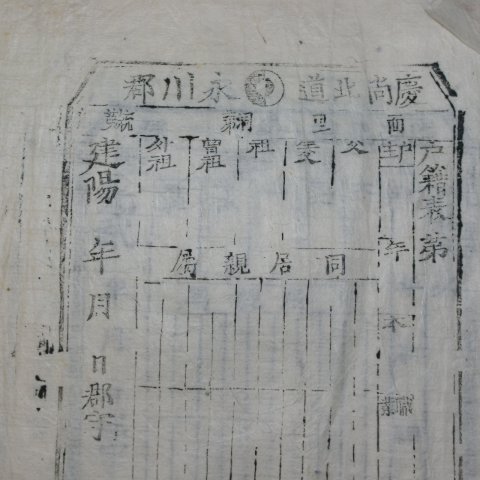 慶尙北道永川郡
面 里 洞 號
戶籍表 第
戶主 年 本 職業
父
祖
曾祖
外祖
同居親屬
建陽 年 月 日 郡守